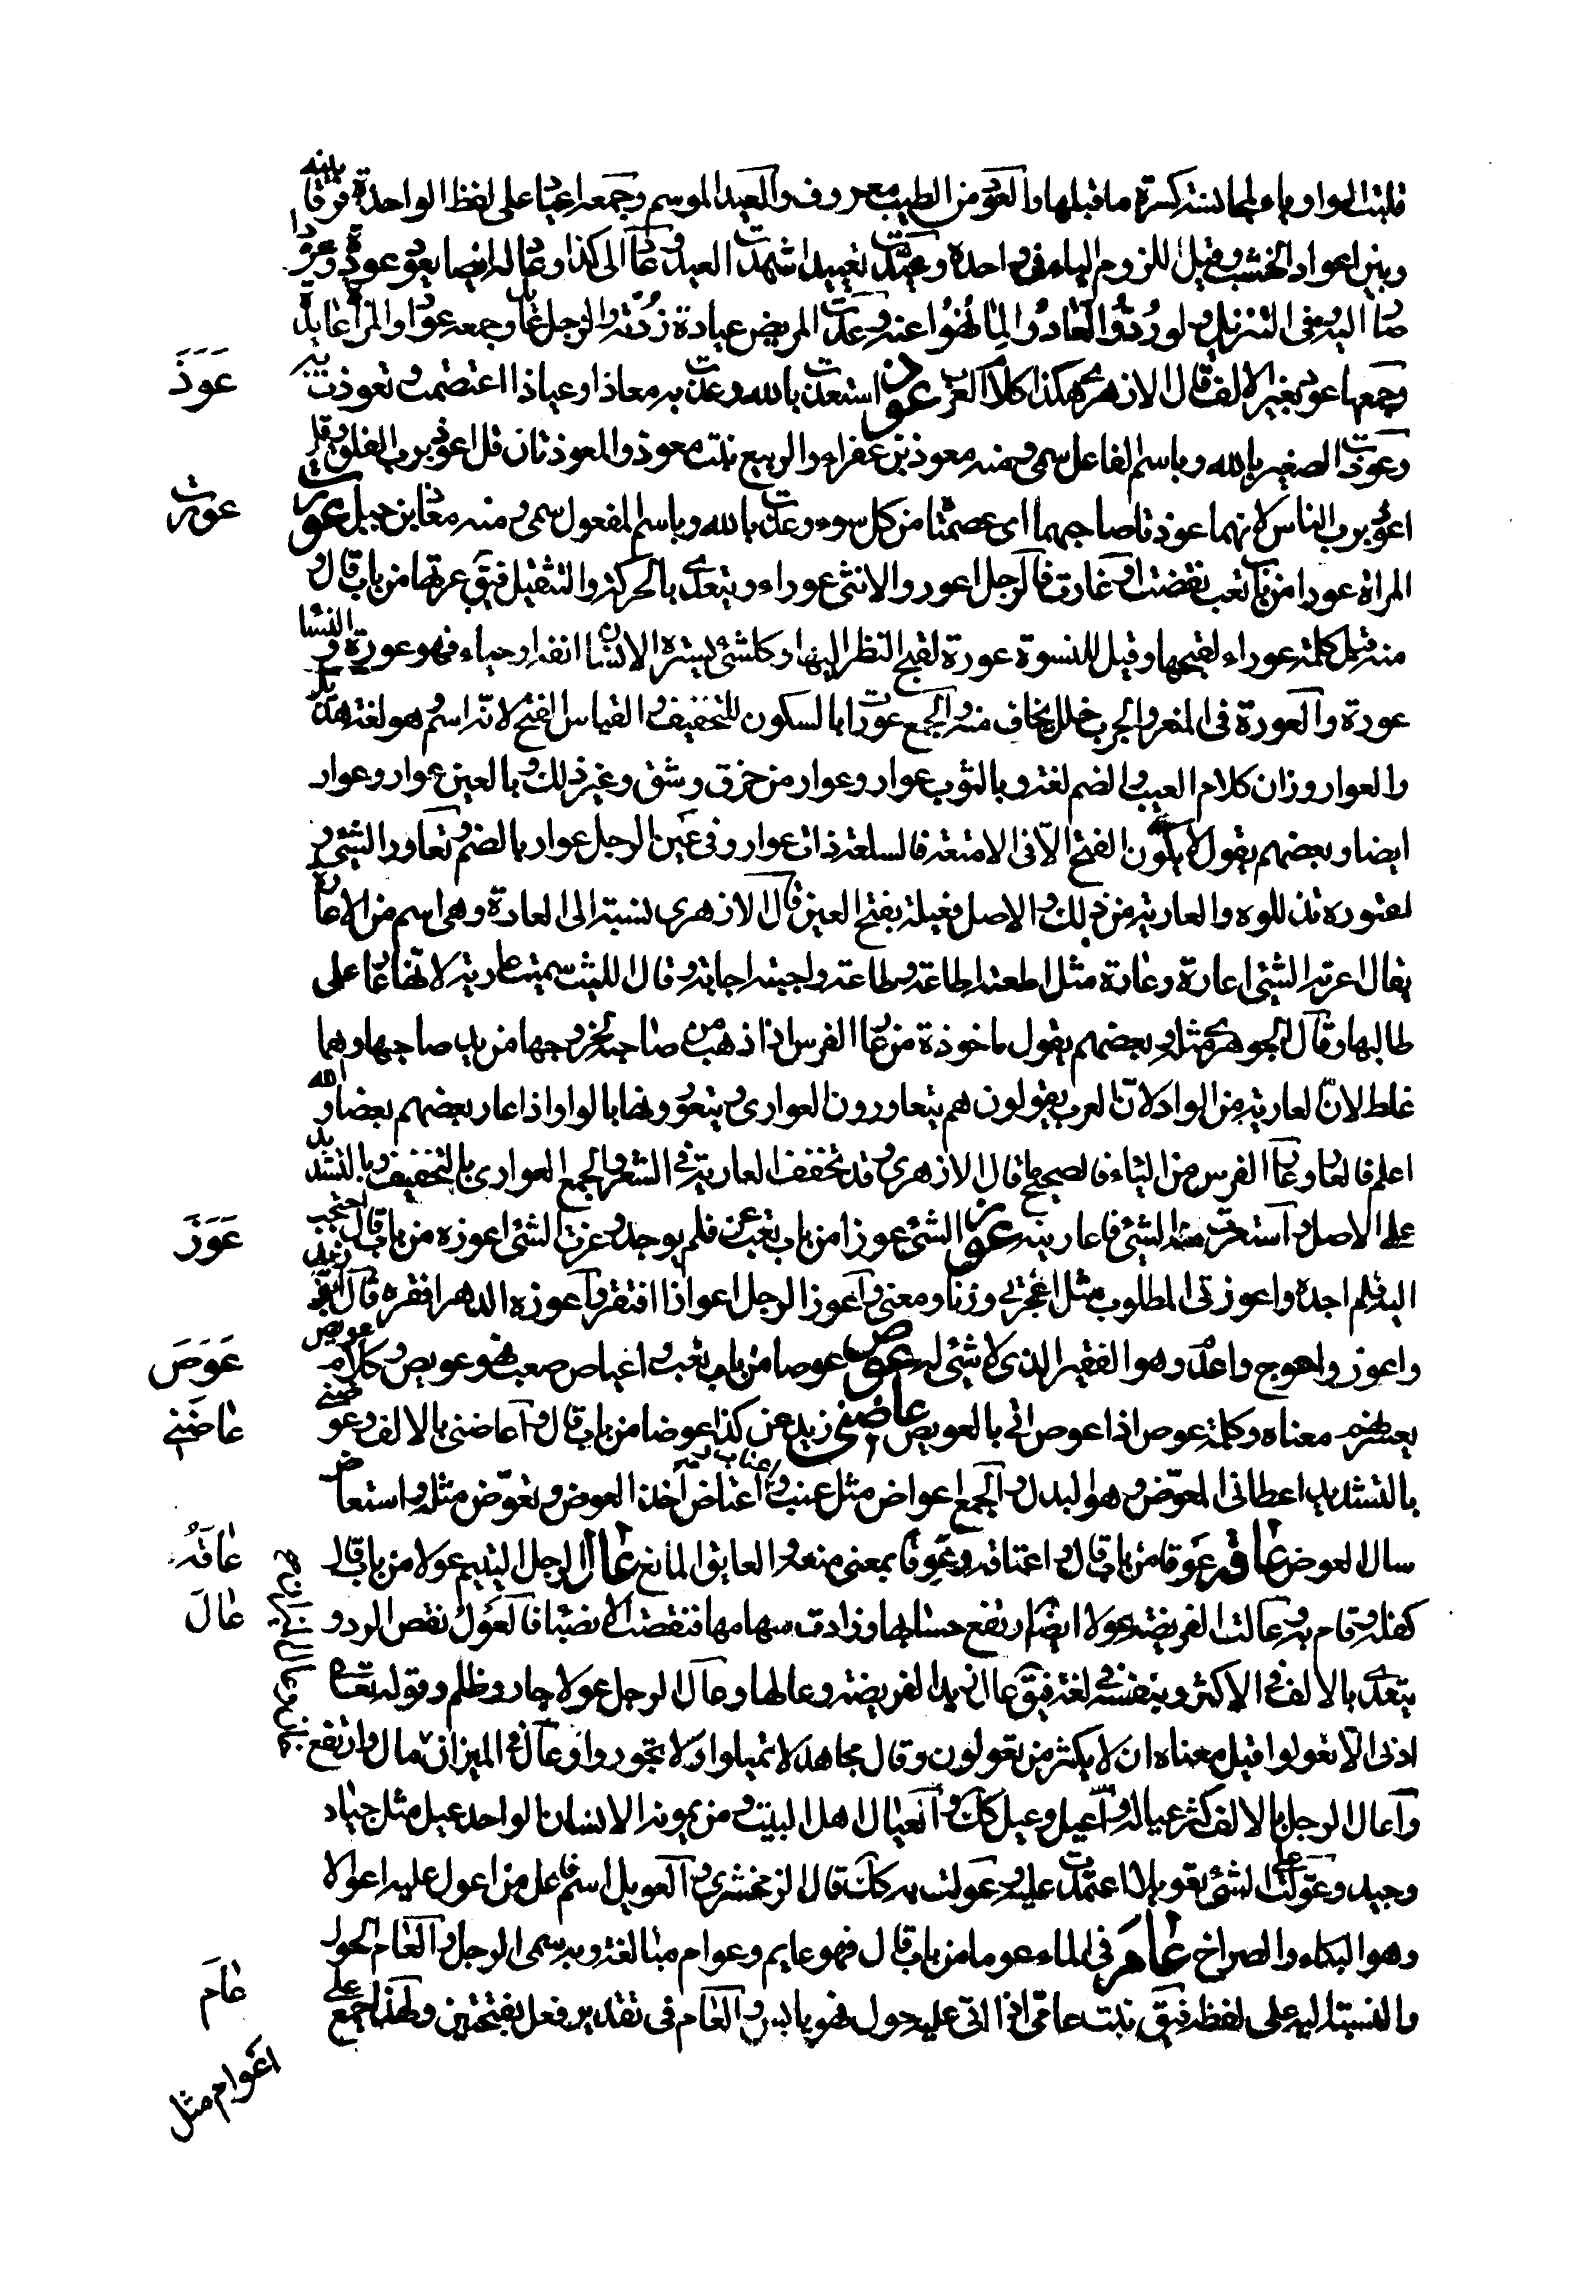 قلبت الواو ياء لمجانسة كسرة ما قبلها والعود من الطيب معروف والعيد الموسم وجمعه اعياد على لفظ الواحدة فرقا بينه
وبين اعواد الخشب وقيل للزوم الياء في واحده وعيدت تعييدا شهدت العيد وعاد الى كذا وعاد له ايضا يعود عودة وعودا
صار اليه وفي التنزيل ولو ردوا لعادوا لما نهوا عنه وعدت المريض عيادة زرته والرجل عايد وجمعه عواد والمراة عايدة
وجمعها عود بغير الالف قال الازهري هكذا كلام العرب عوذ استعذت بالله وعذت به معاذا وعياذا اعتصمت وتعوذت به
وعوذت الصغير بالله وباسم الفاعل سمي ومنه معوذ بن عفراء والربيع بنت معوذ والمعوذتان قل اعوذ برب الفلق وقل
اعوذ برب الناس لانهما عوذتا صاحبهما اي عصمتا من كل سوء وعذت بالله وباسم المفعول سمي ومنه معاذ بن جبل عورت
المراة عورا من باب تعب نقصت او غارت فالرجل اعور والانثى عوراء ويتعدى بالحركة والتثقيل فيق عرتها من باب قال و
منه قيل كلمة عوراء لقبحها وقيل للسوءة عورة لقبح النظر اليها وكل شئ يستره الانسان انفة وحياء فهو عورة والنساء
عورة والعورة في الثغر والحرب خلل يخاف منه والجمع عورات بالسكون للتخفيف والقياس الفتح لانه اسم وهو لغة هذيل
والعوار وزان كلام العيب والضم لغة وبالثوب عوار وعوار من خرق وشق وغير ذلك وبالعين عوار وعوار
ايضا وبعضهم يقول لا يكون الفتح الا في الامتعة فالسلعة ذات عوار وفي عين الرجل عوار بالضم وتعاوروا الشئ و
اعتوروه تداولوه والعارية من ذلك والاصل فعيلة بفتح العين قال الازهري نسبة الى العارة وهي اسم من الاعارة
يقال اعرته الشئ اعارة وعارة مثل اطعته اطاعة وطاعة واجبته اجابة وقال الليث سميت عارية لانها عار على
طالبها وقال الجوهري مثله وبعضهم يقول ماخوذة من عار الفرس اذا ذهب من صاحبه لخروجها من يد صاحبها وهما
غلط لان العارية من الواو لان العرب يقولون هم يتعاورون العواري ويتعورونها بالواو اذا اعار بعضهم بعضا والله
اعلم فالعار وعار الفرس من الياء فالصحيح ما قال الازهري وقد تخفف العارية في الشعر والجمع العواري بالتخفيف وبالتشديد
على الاصل واستعرت منه الشئ فاعارنيه عوز الشئ عوزا من باب تعب عز فلم يوجد وعزت الشئ اعوزه من باب قال احتجت
اليه فلم اجده واعوزني المطلوب مثل اعجزني وزنا ومعنى واعوز الرجل اعوازا افتقر واعوزه الدهر افقره قال ابو زيد
واعوز واهوج واعدم وهو الفقير الذي لا شئ له عوص عوصا من باب تعب واعتاص صعب فهو عويص وكلام عويص
يعسر فهم معناه وكلمة عوص اذا عوص اتى بالعويص عاضني زيد عن كذا عوضا من باب قال واعاضني بالالف وعوضني
بالتشديد اعطاني العوض وهو البدل والجمع اعواض مثل عنب واعناب واعتاض اخذ العوض وتعوض مثله واستعاض
سال العوض عاقه عوقا من باب قال واعتاقه وعوقه بمعنى منعه والعايق المانع عال الرجل اليتيم عولا من باب قال
كفله وقام به وعالت الفريضة عولا ايضا ارتفع حسابها وزادت سهامها فنقصت الانصباء فالعول نقص الرد و
يتعدى بالالف في الاكثر وبنفسه في لغة فيق عال زيد الفريضة وعالها وعال الرجل عولا جار وظلم وقوله تعالى
ادنى الا تعولوا قيل معناه ان لا يكثر من تعولون وقال مجاهد لا تميلوا ولا تجوروا وعال في الميزان مال وارتفع
واعال الرجل بالالف كثر عياله واعيل وعيل كذلك والعيال اهل البيت ومن يمونه الانسان الواحد عيل مثل جياد
وجيد وعولت على الشئ تعويلا اعتمدت عليه وعولت به كذلك قال الزمخشري والعويل اسم فاعل من اعول عليه اعوالا
وهو البكاء والصراخ عام في الماء عوما من باب قال فهو عايم وعوام مبالغة وبه سمي الرجل والعام الحول
والنسبة اليه على لفظه فيق نبت عامي اذا اتى عليه حول فهو يابس والعام في تقدير فعل بفتحتين ولهذا جمع على
اعوام مثل
عَوَذَ
عورت
عَوَزَ
عَوَصَ
عاضني
عاقه
عال
عام